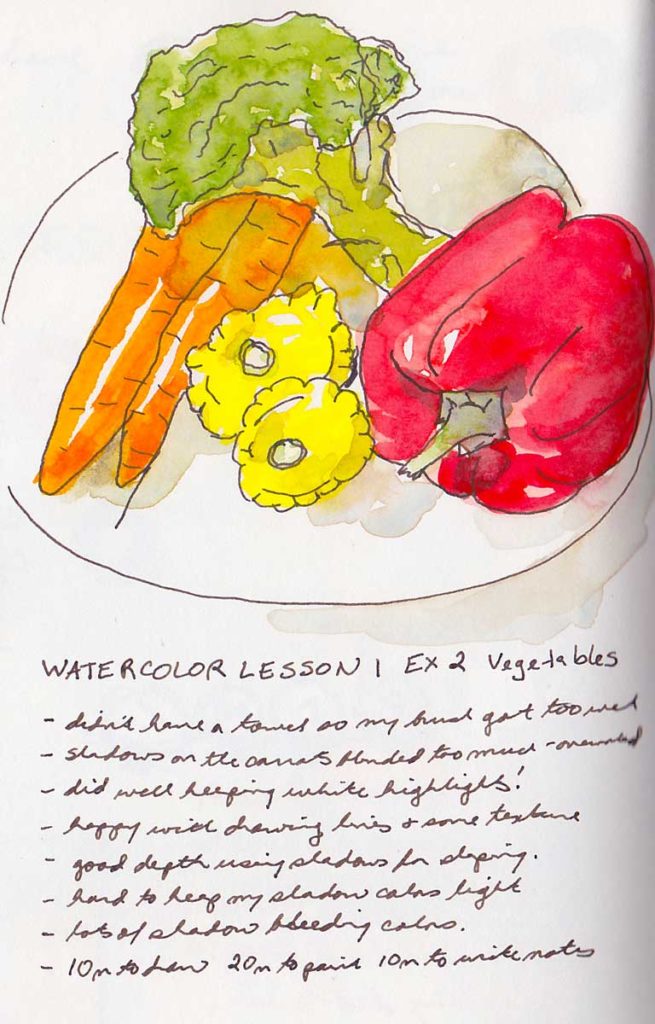 WATERCOLOR LESSON 1 Ex 2 Vegetables
- didn't have a towel so my brush got too wet
- shadows on the carrots blended too much -
- did well keeping white highlights!
- happy with drawing lines & some texture
- good depth using shadows for shaping.
- hard to keep my shadow colors light
- lots of shadow bleeding colors.
- 10m to draw 20m to paint 10m to write notes